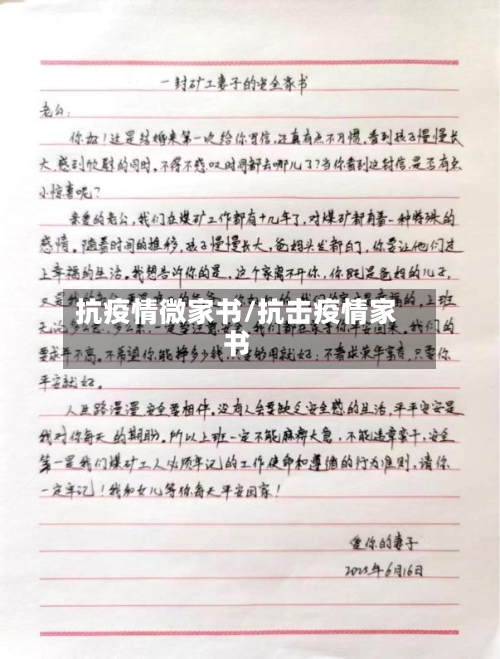 一封矿工妻子的安全家书
老公：
你好！这是结婚来第一次给你写信，还真有点不习惯。看到孩子慢慢长
大，感到欣慰的同时，不得不感叹时间都去哪儿了？当你看到这封信，是否有点
小惊喜呢？
亲爱的老公，我们在煤矿工作都有十几年了，对煤矿都有着一种特殊的
感情。随着时间的推移，孩子慢慢长大，爸妈头发都白了，你要让他们过
上幸福的生活。我想告诉你的是，这个家离不开你，你既是爸妈的儿子，
抗疫情微家书/抗击疫情家
书
要求并不高，不希望你能挣多少钱
平安就好。
人生路漫漫，安全要相伴，没有人会要缺乏安全感的生活，平平安安是
我对你每天的期盼。所以上班一定不能麻痹大意，不能违章蛮干，安全
第一是我们煤矿工人必须牢记的工作使命和遵循的行为准则，请你
一定牢记！我和女儿等你每天平安回家！
爱你的妻子
6月16日